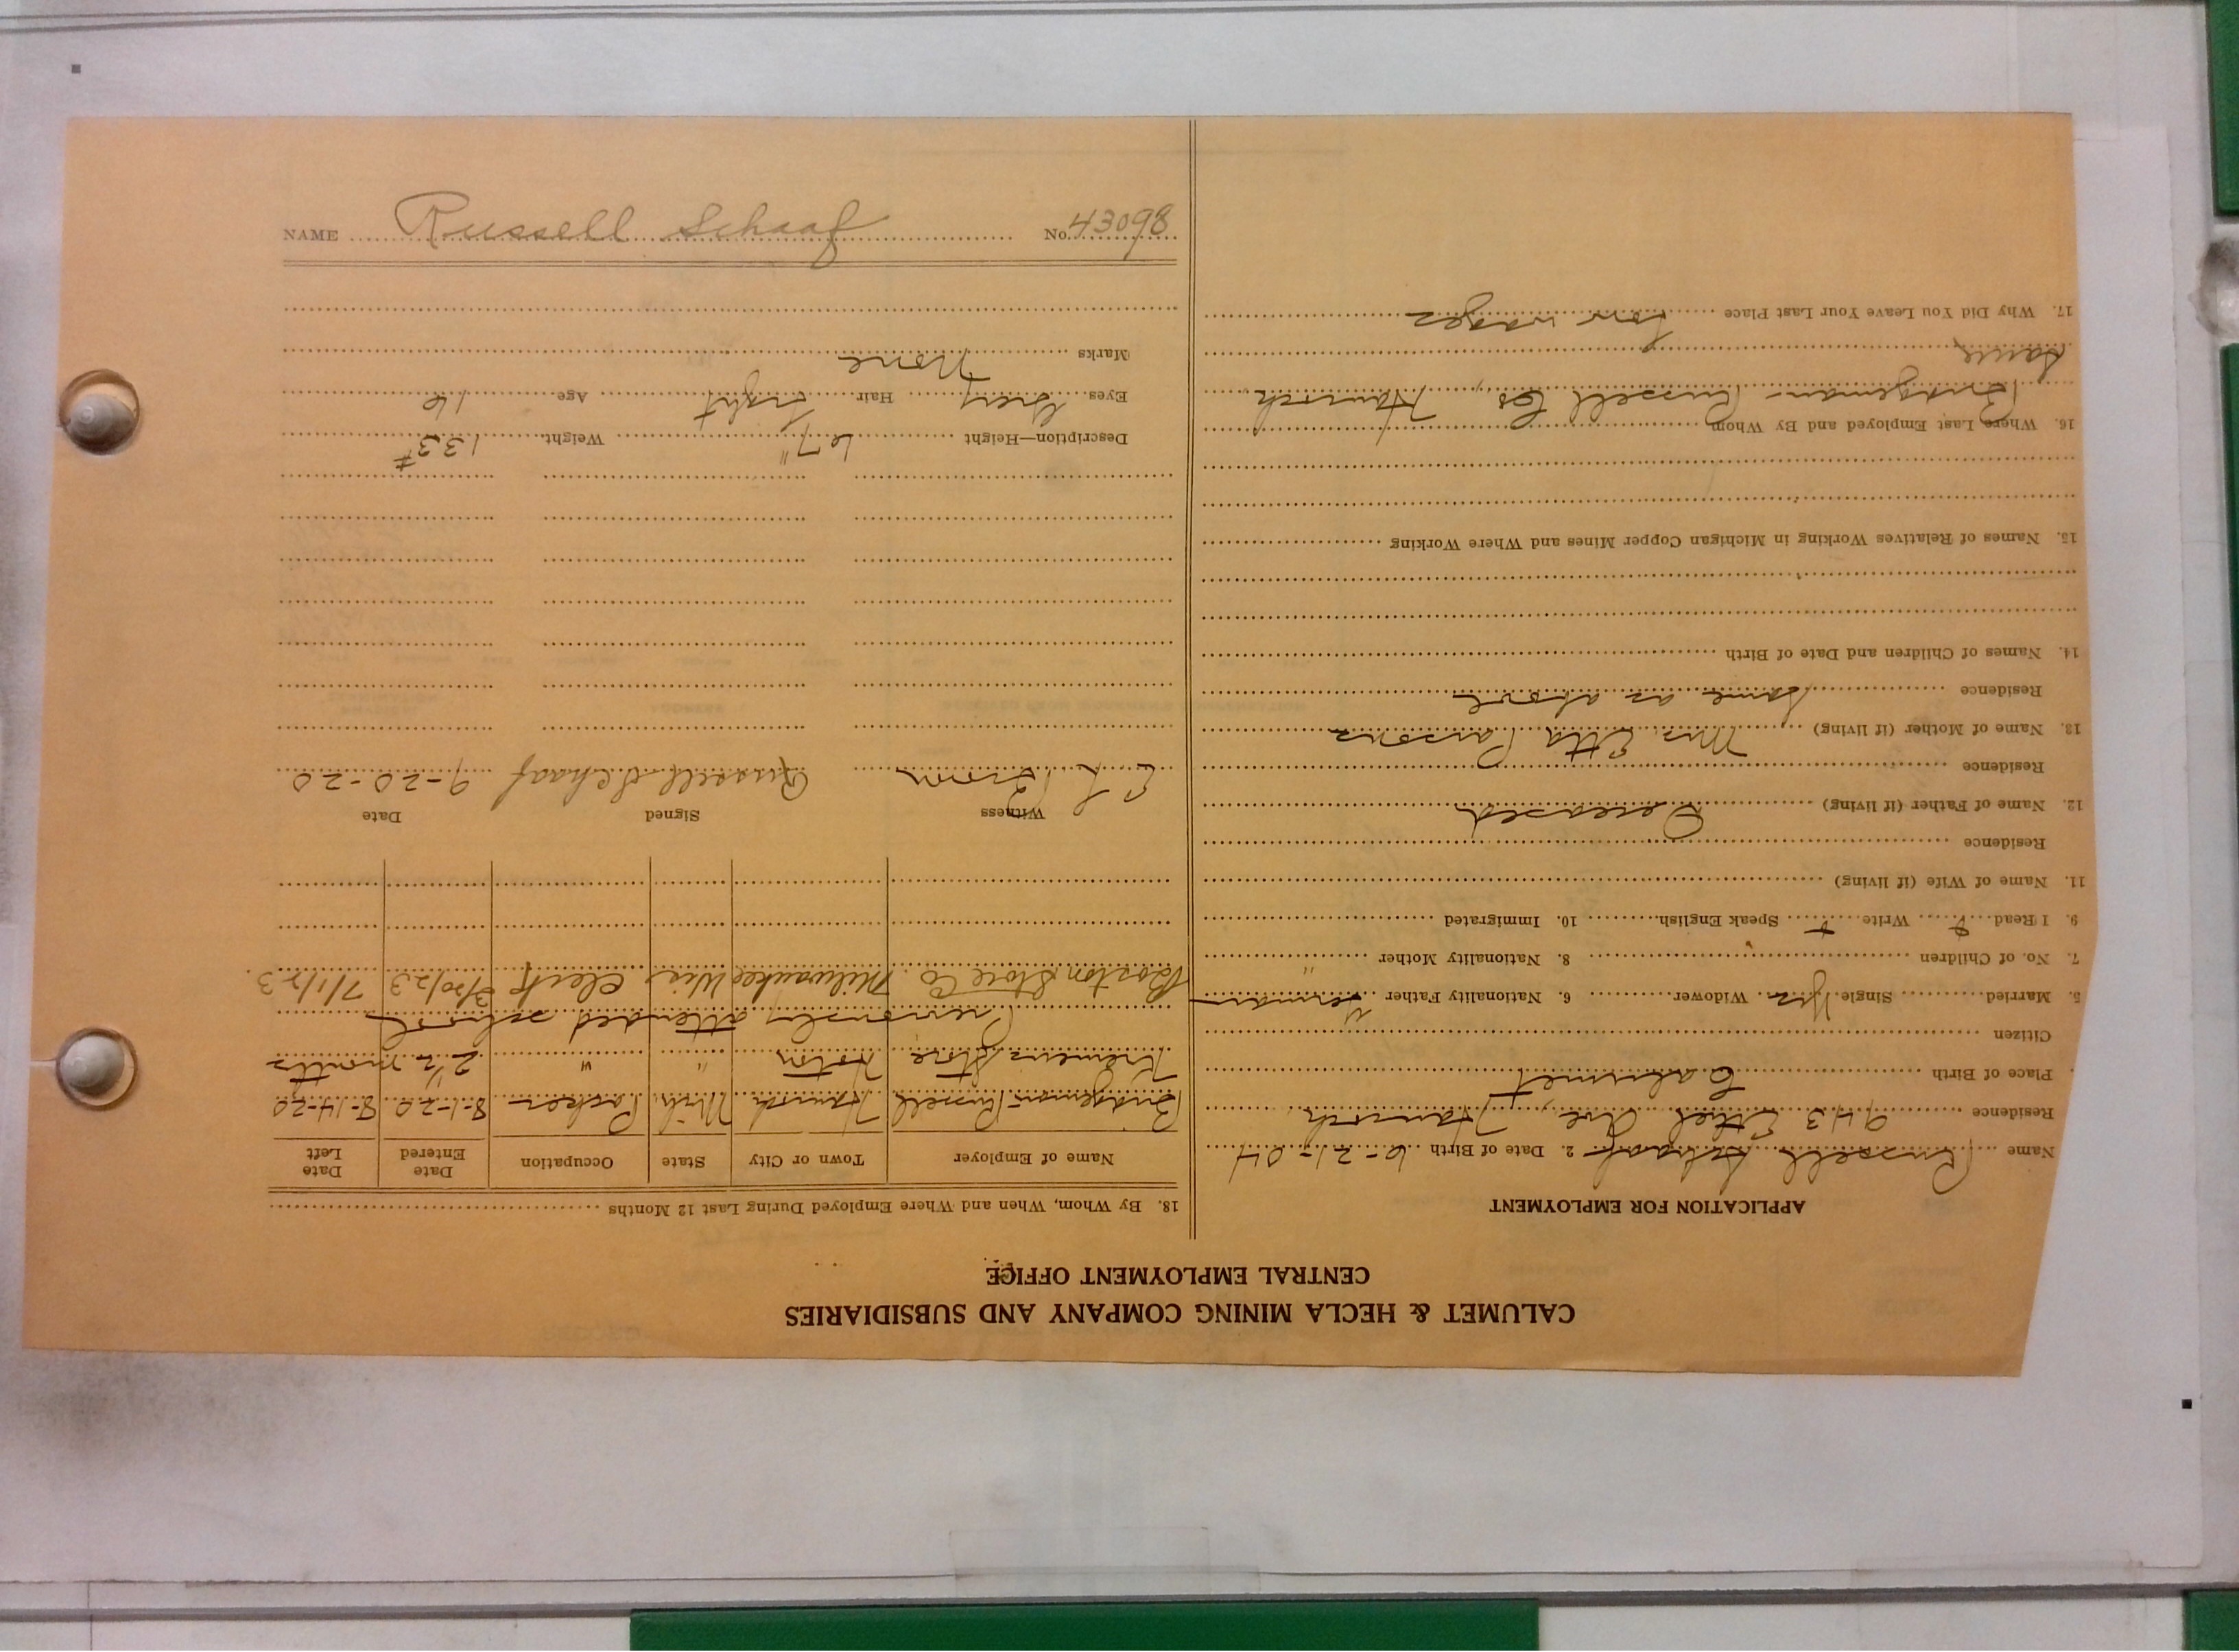 CALUMET & HECLA MINING COMPANY AND SUBSIDIARIES
CENTRAL EMPLOYMENT OFFICE
APPLICATION FOR EMPLOYMENT
Name Russell Schaaf 2. Date of Birth 6-21-04
Residence 943 Ethel Ave, Hancock
Place of Birth Calumet
Citizen
5. Married Single Yes Widower 6. Nationality Father German
7. No. of Children 8. Nationality Mother "
9. I Read Write Speak English 10. Immigrated
11. Name of Wife (if living)
Residence
12. Name of Father (if living) Deceased
Residence
13. Name of Mother (if living) Mrs. Etta Parsons
Residence Same as above
14. Names of Children and Date of Birth
15. Names of Relatives Working in Michigan Copper Mines and Where Working
16. Where Last Employed and By Whom
Bridgeman-Russell Co, Hancock
Same
17. Why Did You Leave Your Last Place Low wages
18. By Whom, When and Where Employed During Last 12 Months
Name of Employer Town or City State Occupation Date Entered Date Left
Bridgeman-Russell Hancock Mich. Packer 8-1-20 8-14-20
Store Hoton " " 2½ months
Previously attended school
Boston Store Co. Milwaukee Wis Clerk 3/20/23 7/1/23.
Witness Signed Date
Russell Schaaf 9-20-20
Description—Height 67" Weight 133#
Eyes Grey Hair Light Age 16
Marks None
NAME Russell Schaaf No. 43098